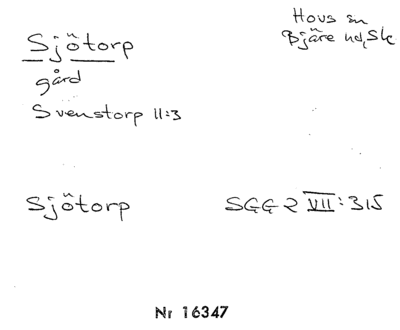 Sjötorp
gård
Svenstorp 11:3
Hovs sn
Bjäre hd, Sk
Sjötorp
SGG 2 VII: 315
Nr 16347